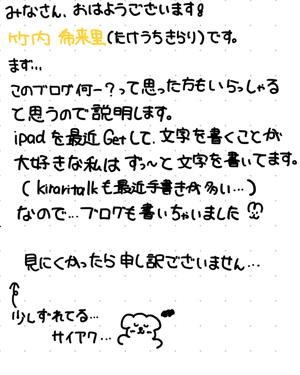 みなさん、おはようございます!
竹内 希来里(たけうちきらり)です。
まず...
このブログ何ー?って思った方もいらっしゃる
と思うので説明します。
iPadを最近Getして、文字を書くことが
大好きな私はず〜っと文字を書いてます。
(kiraritalkも最近手書きが多い...)
なので...ブログも書いちゃいました
見にくかったら申し訳ございません...
↑
少しずれてる...
サイアク...